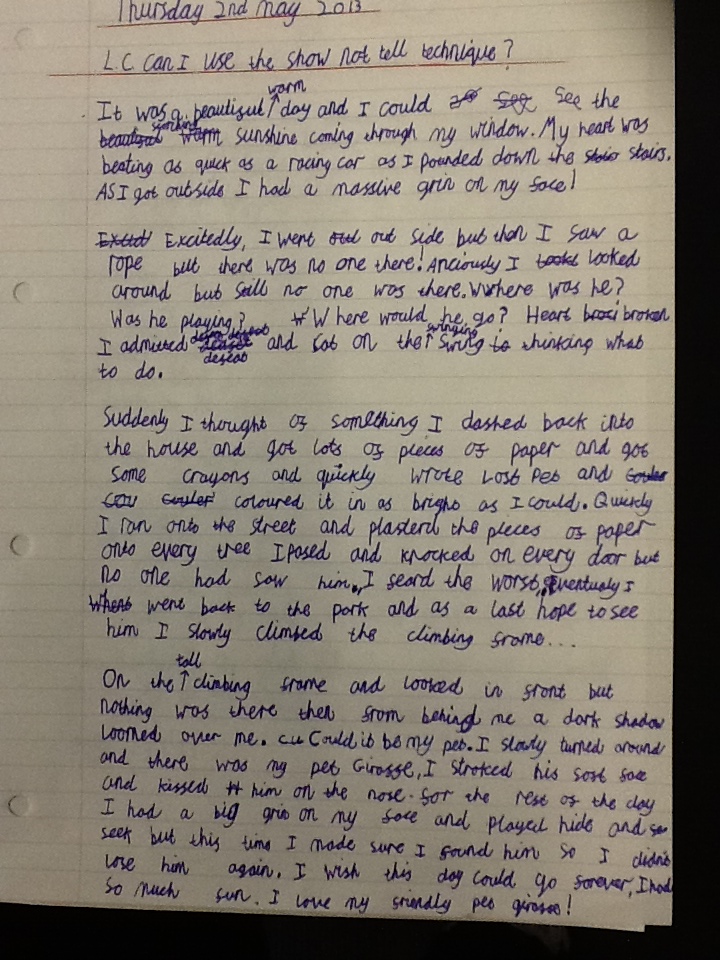 Thursday 2nd May 2013
L.C. Can I use the show not tell technique?
warm
It was a beautiful day and I could see the
scorching
beautiful warm sunshine coming through my window. My heart was
beating as quick as a racing car as I pounded down the stair stairs.
AS I got outside I had a massive grin on my face!
Excitedly, I went out side but than I saw a
rope but there was no one there! Anciously I looked
around but still no one was there. Where was he?
Was he playing? Where would he go? Heart broken
swinging
I admitted and sat on the swing to thinking what
defeat
to do.
Suddenly I thought of something I dashed back into
the house and got lots of pieces of paper and got
some crayons and quickly wrote Lost Pet and
couler coloured it in as bright as I could. Quickly
I ran onto the street and plasterd the pieces of paper
onto every tree I pased and knocked on every door but
no one had saw him. I feard the worst, eventualy I
went back to the park and as a last hope to see
him I slowly climbed the climbing frame...
tall
On the climbing frame and looked in front but
nothing was there then from behind me a dark shadow
loomed over me. Could it be my pet. I slowly turned around
and there was my pet Giraffe, I stroked his soft face
and kissed him on the nose. for the rest of the day
I had a big grin on my face and played hide and
seek but this time I made sure I found him so I didn't
lose him again. I wish this day could go forever, I had
so much fun. I love my friendly pet giraffe!